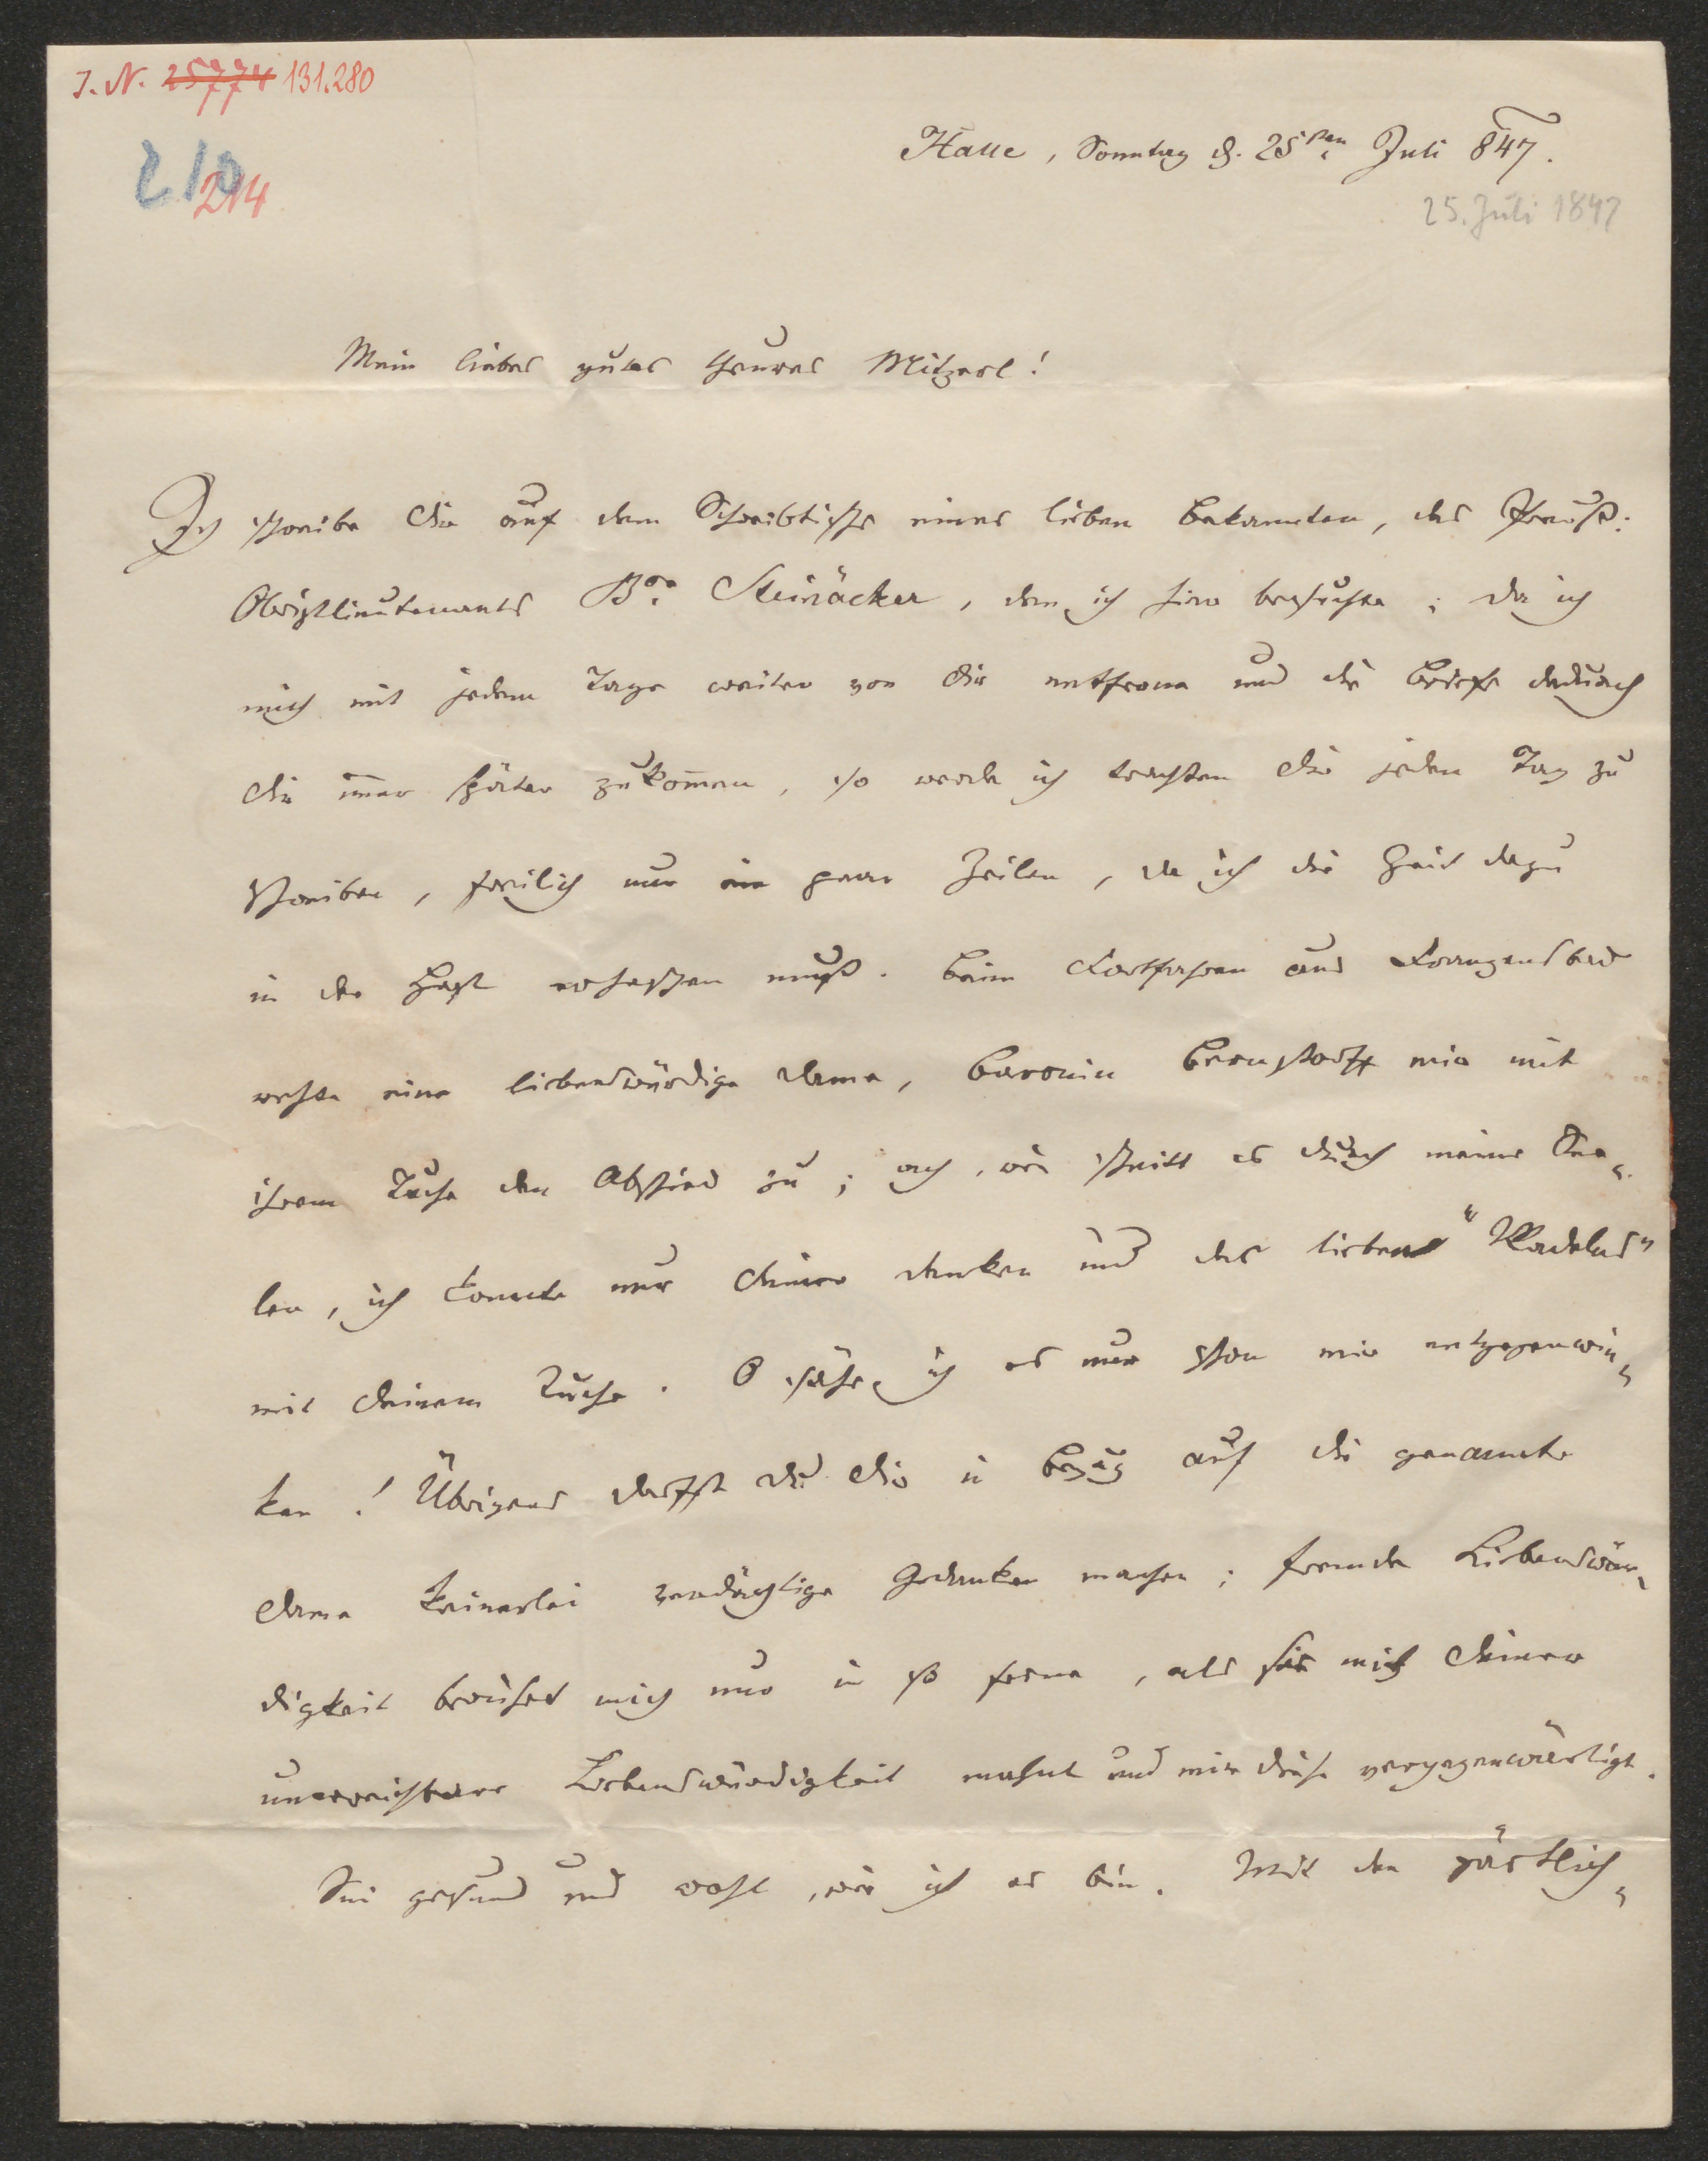 I. N. 25774 131.280
210
214
Halle, Sonntag d. 25ten Juli 847.
25. Juli 1847
Mein liebes gutes theures Mitzerl!
Ich schreibe dir auf dem Schreibtische eines lieben Bekannten, des Preuß:
Obristlieutenants Bon Steinäcker, den ich hier besuchte; da ich
mich mit jedem Tage weiter von dir entferne und die Briefe dadurch
dir im̅er später zukom̅en, so werde ich trachten dir jeden Tag zu
schreiben, freilich nur ein paar Zeilen, da ich die Zeit dazu
in der Hast erhaschen muß. Beim Fortfahren aus Franzensbad
wehte eine liebenswürdige Dame, Baronin Bernstorff mir mit
ihrem Tuche den Abschied zu; ach, wie schnitt es durch meine See„
len, ich konnte nur deiner denken und des lieben "Wachelns"
mit deinem Tuche. O sähe ich es nur schon mir entgegenwin„
ken! Übrigens darfst du dir in Bezug auf die genannte
Dame keinerlei verdächtige Gedanken machen; fremde Liebenswür„
digkeit berühret mich nur in so ferne, als sie mich deiner
unerreichbaren Liebenswürdigkeit mahnt und mir diese vergegenwärtigt.
Sei gesund und wohl, wie ich es bin. Mit den zärtlich„